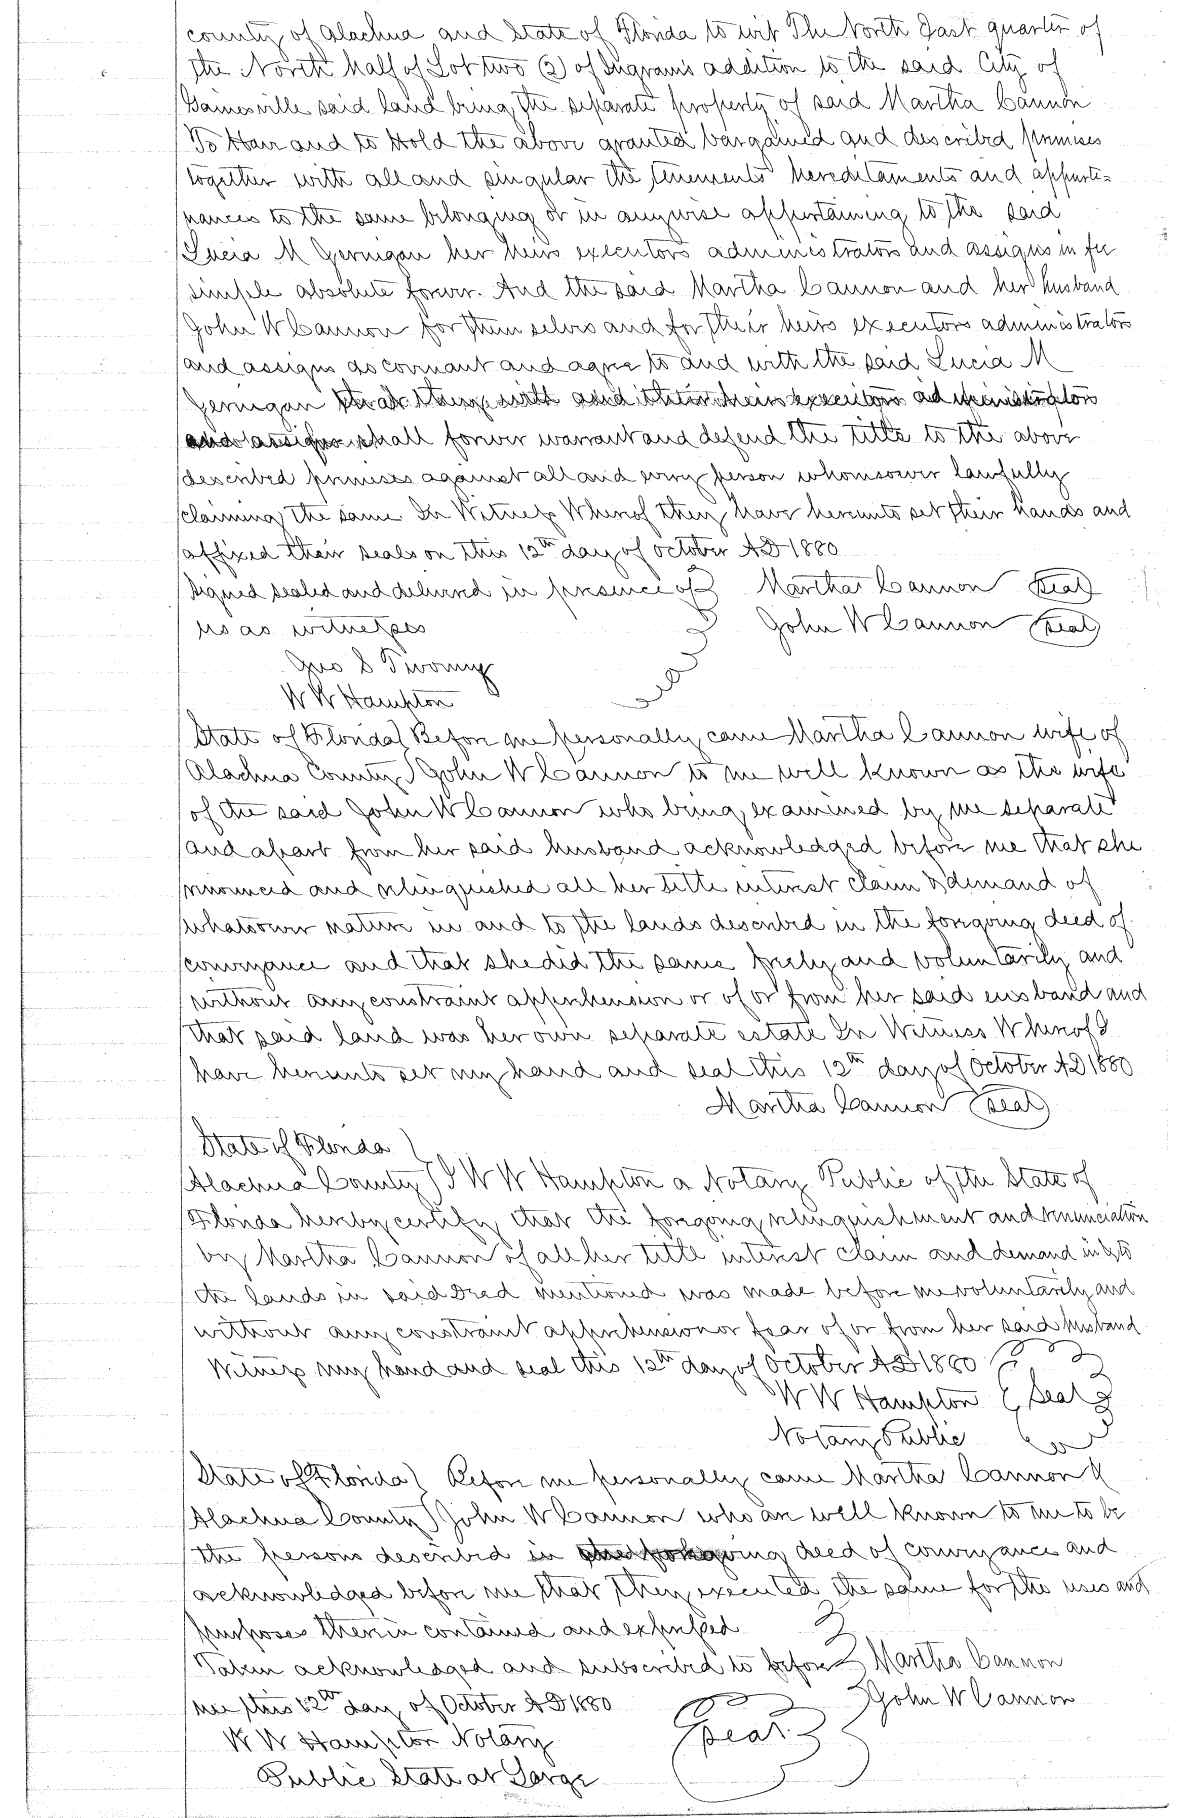 county of Alachua and State of Florida to wit The North East quarter of
the North half of Lot two (2) of Ingrams addition to the said City of
Gainesville said land being the separate property of said Martha Cannon
To Have and to Hold the above granted bargained and described premises
together with all and singular the tenements hereditaments and appurte=
nances to the same belonging or in anywise appertaining to the said
Lucia M Jernigan her heirs executors administrators and assigns in fee
simple absolute forever. And the said Martha Cannon and her husband
John W Cannon for them selves and for their heirs executors administrators
and assigns do covenant and agree to and with the said Lucia M
Jernigan that they will and their heirs executors administrators
and assigns shall forever warrant and defend the title to the above
described premises against all and every person whomsoever lawfully
claiming the same In Witness Whereof they have hereunto set their hands and
affixed their seals on this 12th day of October AD 1880
Signed sealed and delivered in presence of Martha Cannon Seal
us as witnesses John W Cannon Seal
Geo S Twomey
W W Hampton
State of Florida Before me personally came Martha Cannon wife of
Alachua County John W Cannon to me well known as the wife
of the said John W Cannon who being examined by me separate
and apart from her said husband acknowledged before me that she
renounced and relinquished all her title interest claim & demand of
whatsoever nature in and to the lands described in the foregoing deed of
conveyance and that she did the same freely and voluntarily and
without any constraint apprehension or of or from her said husband and
that said land was her own separate estate In Witness Whereof I
have hereunto set my hand and seal this 12th day of October AD 1880
Martha Cannon Seal
State of Florida
Alachua County I W W Hampton a Notary Public of the State of
Florida hereby certify that the foregoing relinquishment and renunciation
by Martha Cannon of all her title interest claim and demand in & to
the lands in said Deed mentioned was made before me voluntarily and
without any constraint apprehension or fear of or from her said husband
Witness my hand and seal this 12th day of October AD 1880
W W Hampton Seal
Notary Public
State of Florida Before me personally came Martha Cannon &
Alachua County John W Cannon who are well known to me to be
the persons described in the foregoing deed of conveyance and
acknowledged before me that they executed the same for the uses and
purposes therein contained and expressed
Taken acknowledged and subscribed to before Martha Cannon
me this 12th day of October AD 1880 John W Cannon
W W Hampton Notary Seal
Public State at Large